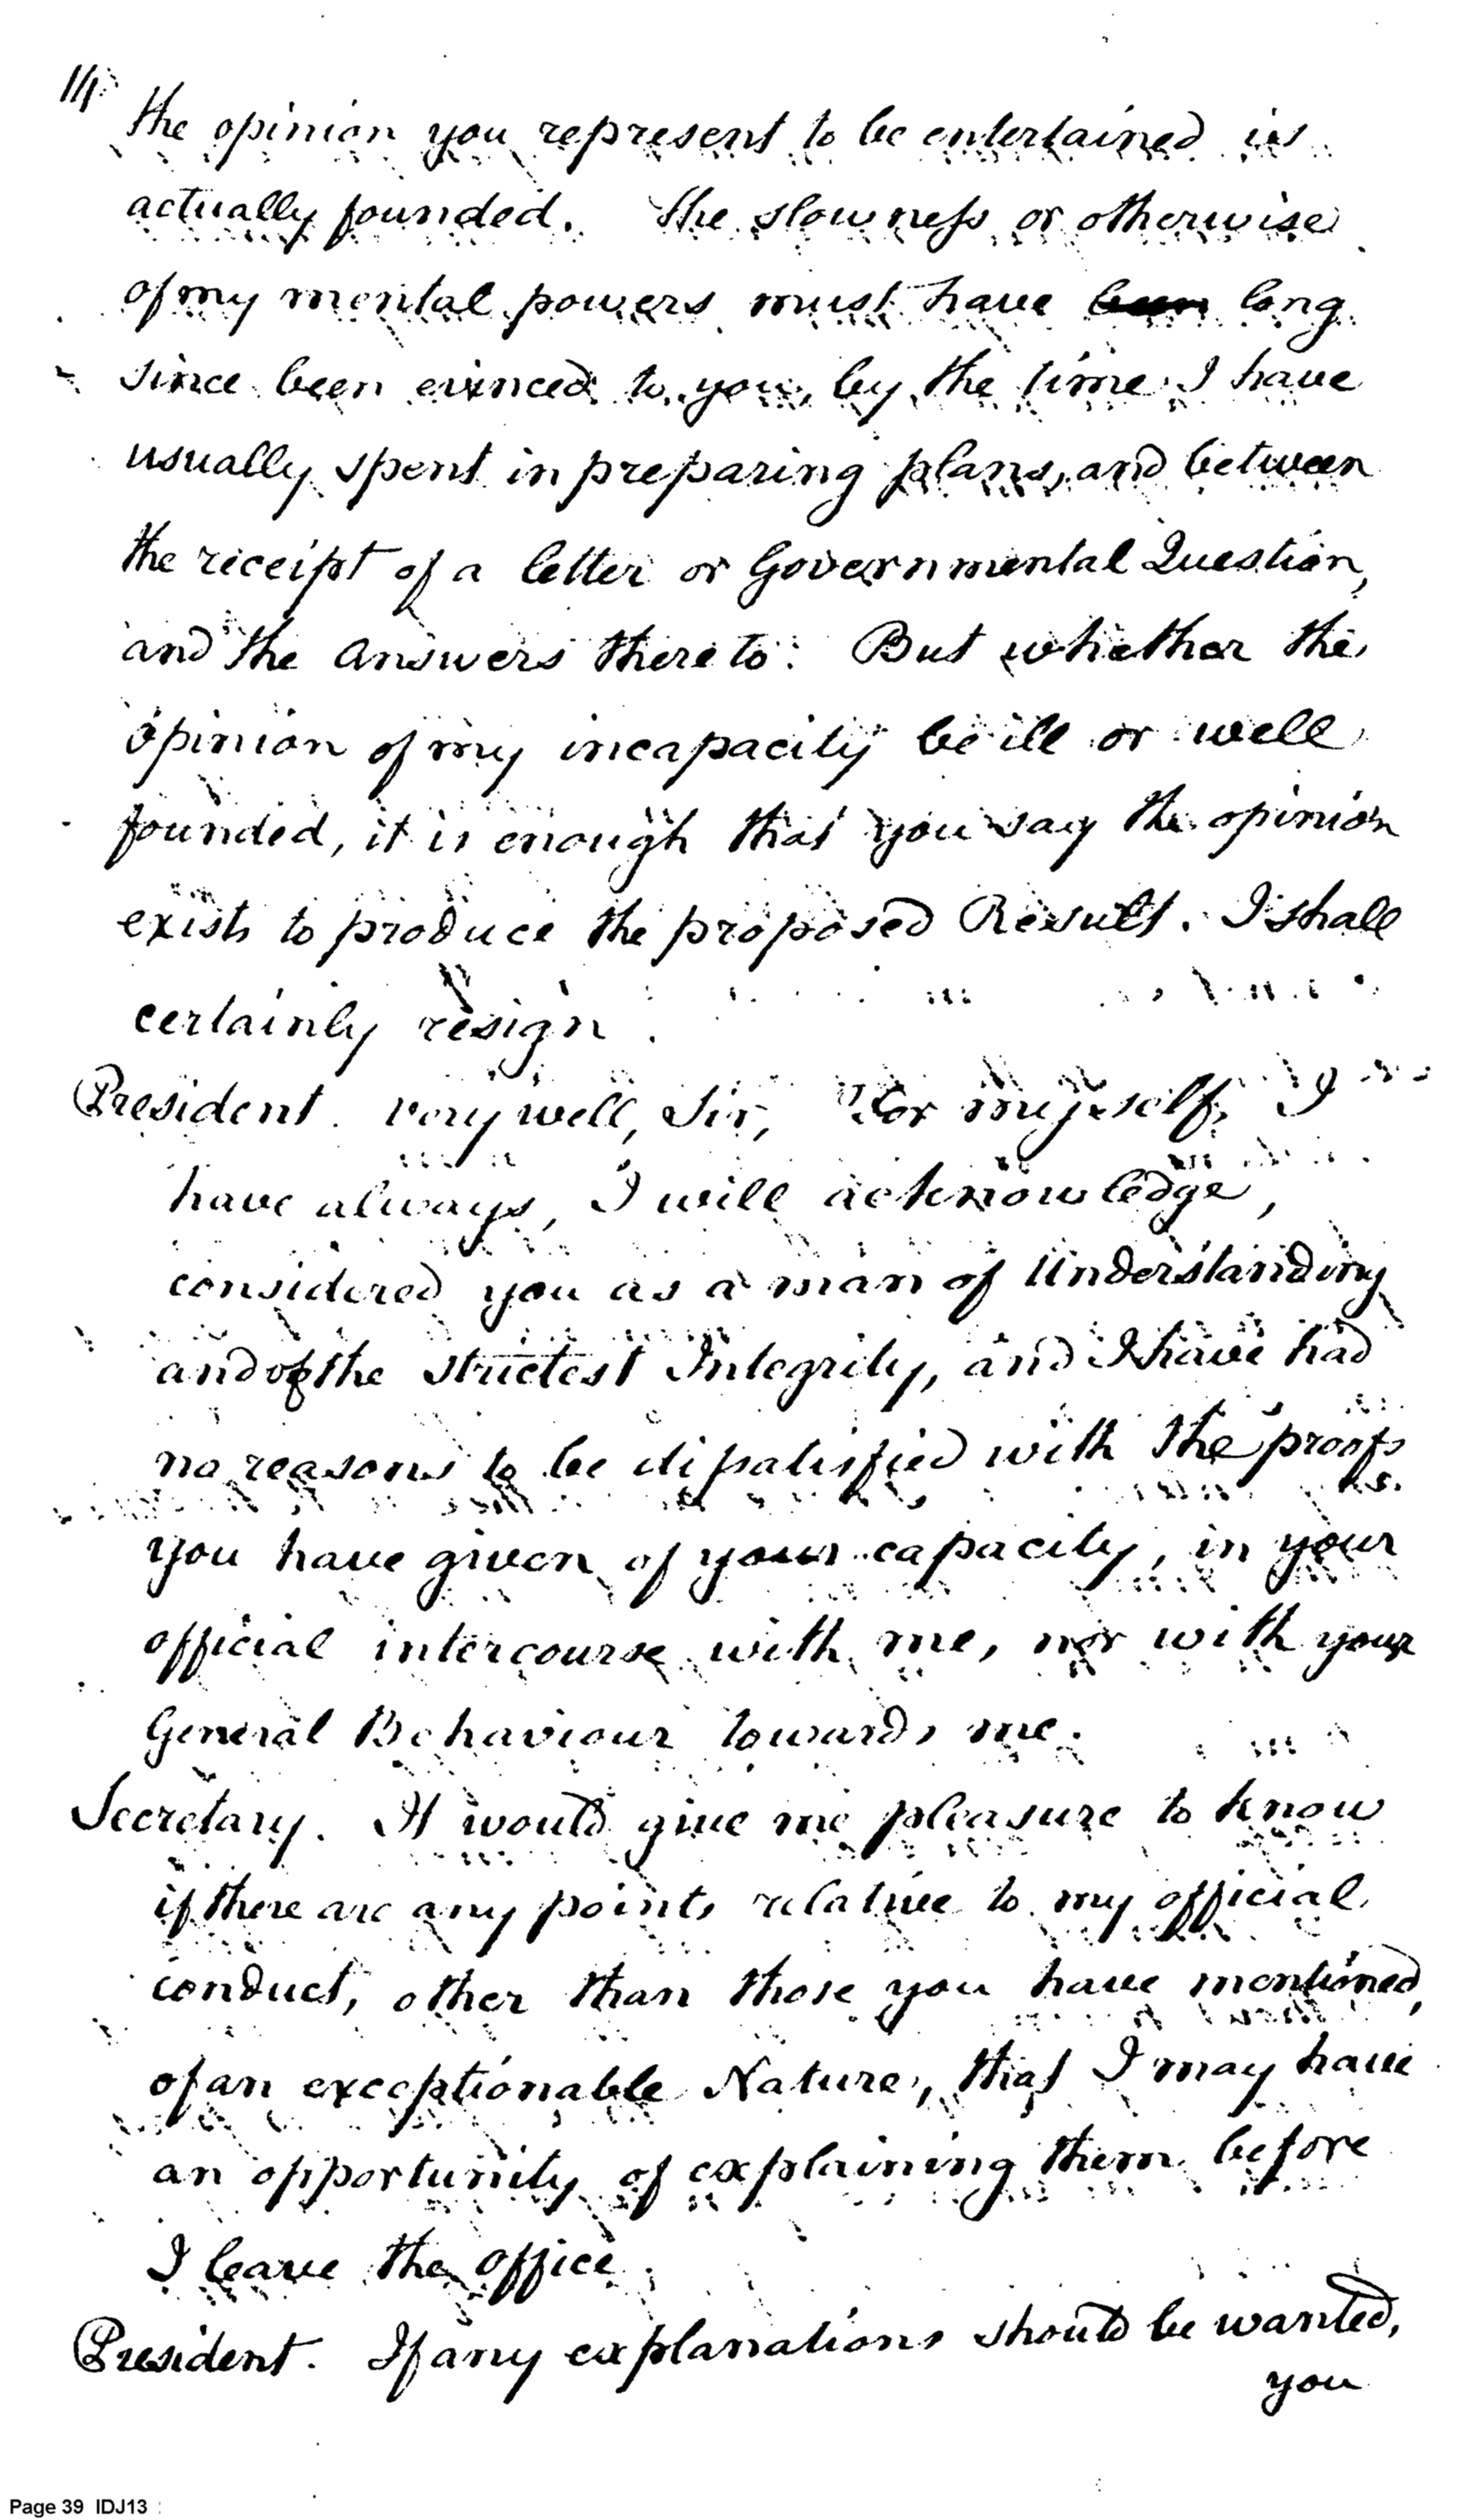 the opinion you represent to be entertained is
actually founded. The slowness or otherwise
of my mental powers must have been long
since been evinced to you, by the time I have
usually spent in preparing plans, and between
the receipt of a letter or Governmental Question,
and the answers thereto. But whether the
opinion of my incapacity be ill or well
founded, it is enough that you say the opinion
exists to produce the proposed Result. I shall
certainly resign.
President. very well, Sir, For myself, I
have always, I will acknowledge,
considered you as a man of Understanding
and of the strictest Integrity, and I have had
no reasons to be dissatisfied with the proofs
you have given of your capacity, in your
official intercourse with me, nor with your
General Behaviour towards me.
Secretary. It would give me pleasure to know
if there are any points relative to my official
conduct, other than those you have mentioned,
of an exceptionable Nature, that I may have
an opportunity of explaining them before
I leave the office.
President. If any explanations should be wanted,
you
Page 39 IDJ13